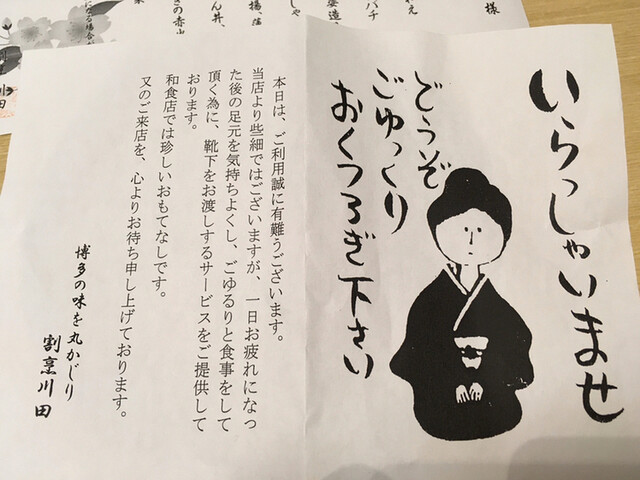 いらっしゃいませ
どうぞ
ごゆっくり
おくつろぎ下さい
本日は、ご利用誠に有難うございます。
当店より些細ではございますが、一日お疲れになっ
た後の足元を気持ちよくし、ごゆるりと食事をして
頂く為に、靴下をお渡しするサービスをご提供して
おります。
和食店では珍しいおもてなしです。
又のご来店を、心よりお待ち申し上げております。
博多の味を丸かじり
割烹川田
様
バチ
きの赤山
川田